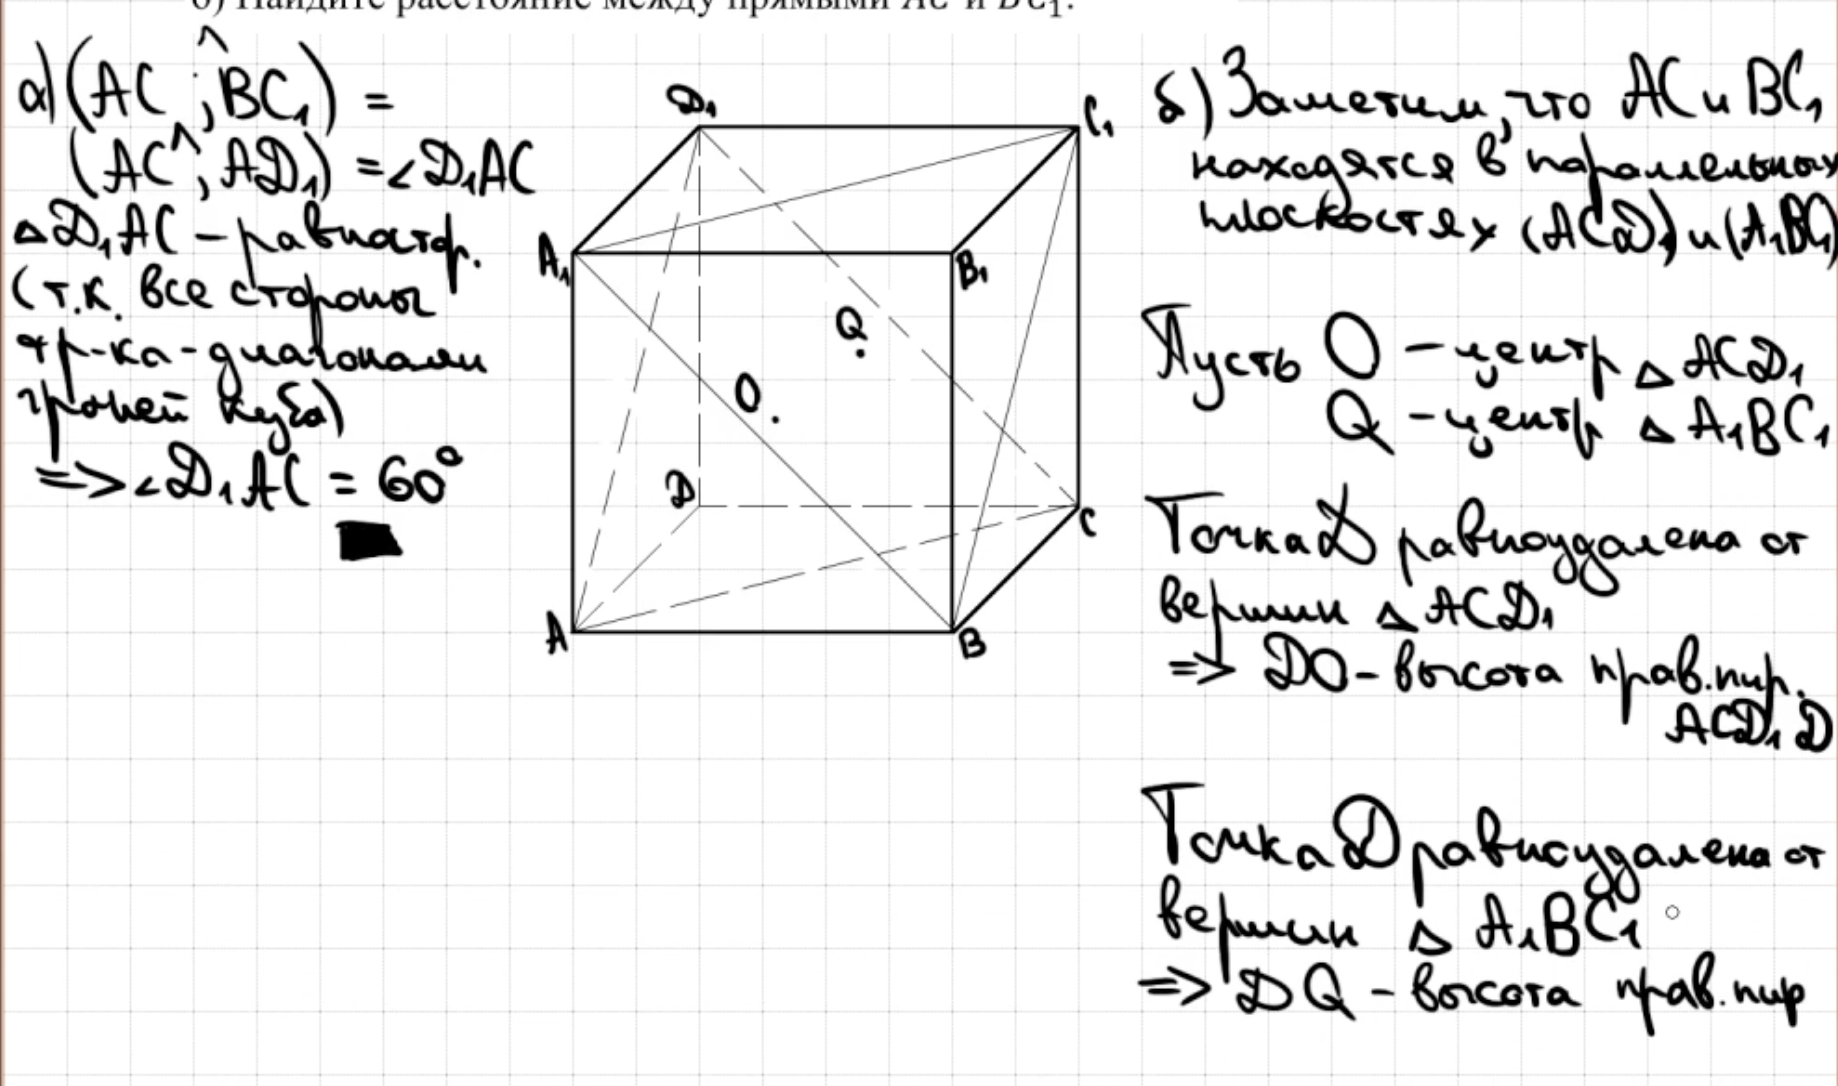 б) Найдите расстояние между прямыми AC и BC₁.
а) (AC ^; BC₁) =
(AC ^; AD₁) = ∠D₁AC
△D₁AC – равностор.
(т.к. все стороны
тр-ка - диагонали
граней куба)
=> ∠D₁AC = 60°
D₁
C₁
A₁
B₁
Q
O
D
C
A
B
б) Заметим, что AC и BC₁
находятся в параллельных
плоскостях (ACD₁) и (A₁BC₁)
Пусть O – центр △ ACD₁
Q – центр △ A₁BC₁
Точка D равноудалена от
вершин △ ACD₁
=> DO – высота прав. пир.
ACD₁D
Точка D равноудалена от
вершин △ A₁BC₁
=> DQ – высота прав. пир